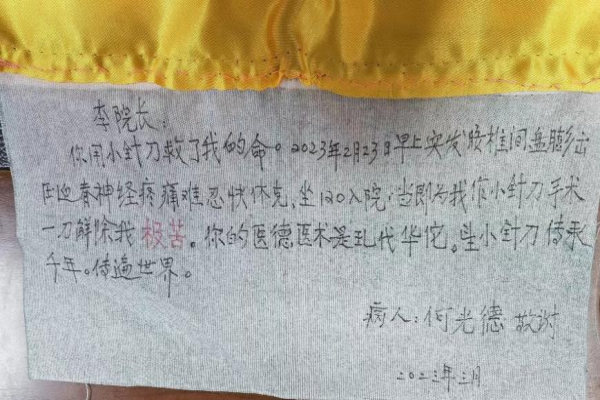 李院长:
你用小针刀救了我的命。2023年2月23日早上突发腰椎间盘膨出
压迫脊神经疼痛难忍快休克,坐120入院,当即为我作小针刀手术
一刀解除我极苦。你的医德医术是现代华佗。小针刀传承
千年。传遍世界。
病人:何光德 敬谢
二〇二三年三月